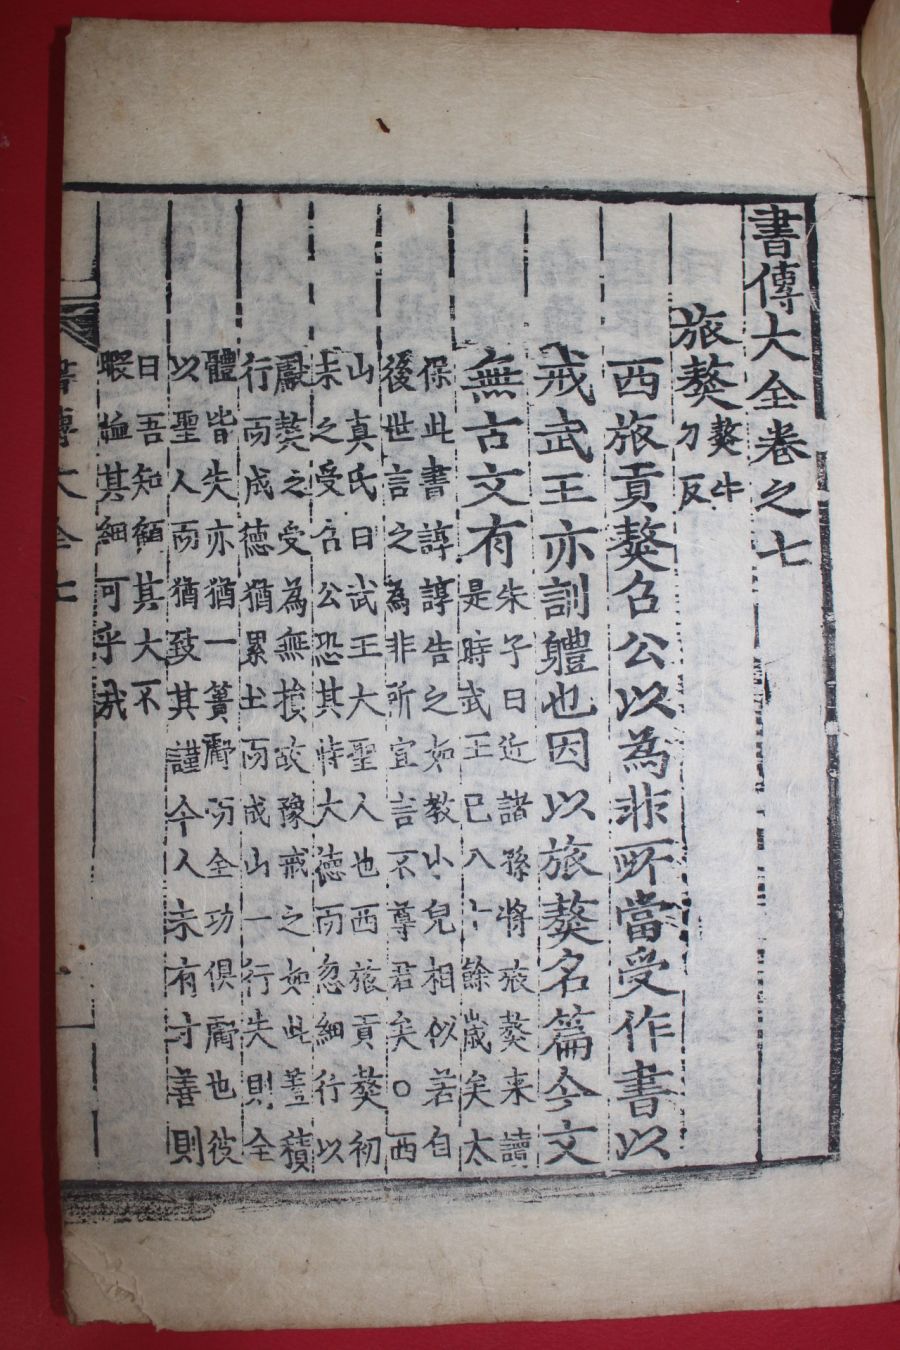 書傳大全卷之七
旅獒
獒牛
刀反
西旅貢獒召公以為非所當受作書以
戒武王亦訓體也因以旅獒名篇今文
無古文有
朱子曰近諸孫將旅獒来讀
是時武王已八十餘歲矣太
保此書諄諄告之如教小兒相似若自
後世言之為非所宜言不尊君矣○西
山真氏曰武王大聖人也西旅貢獒初
未之受召公恐其恃大德而忽細行以
獒之受為無損故豫戒之如此蓋積
行而成德猶累土而成山一行失則全
體皆失亦猶一簣虧而全功俱虧也彼
以聖人而猶致其謹今人未有寸善則
曰吾知顧其大不
暇其細可乎哉
書傳大全七